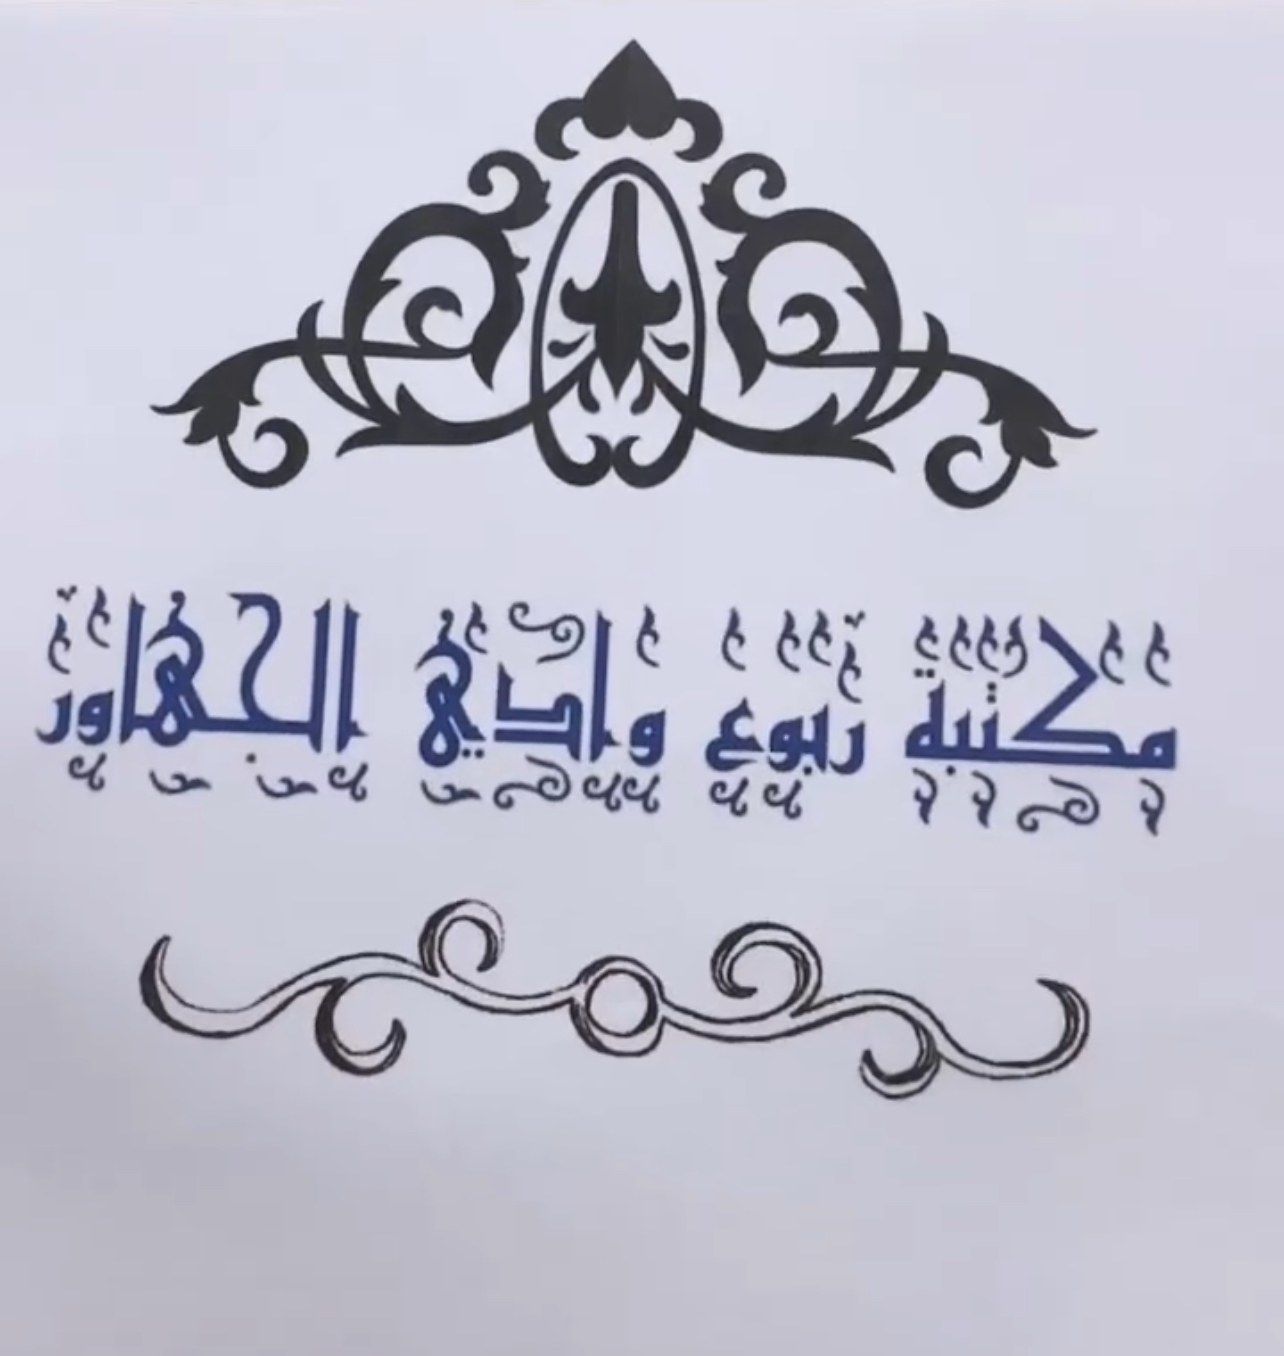 مكتبة ربوع وادي الجهاور